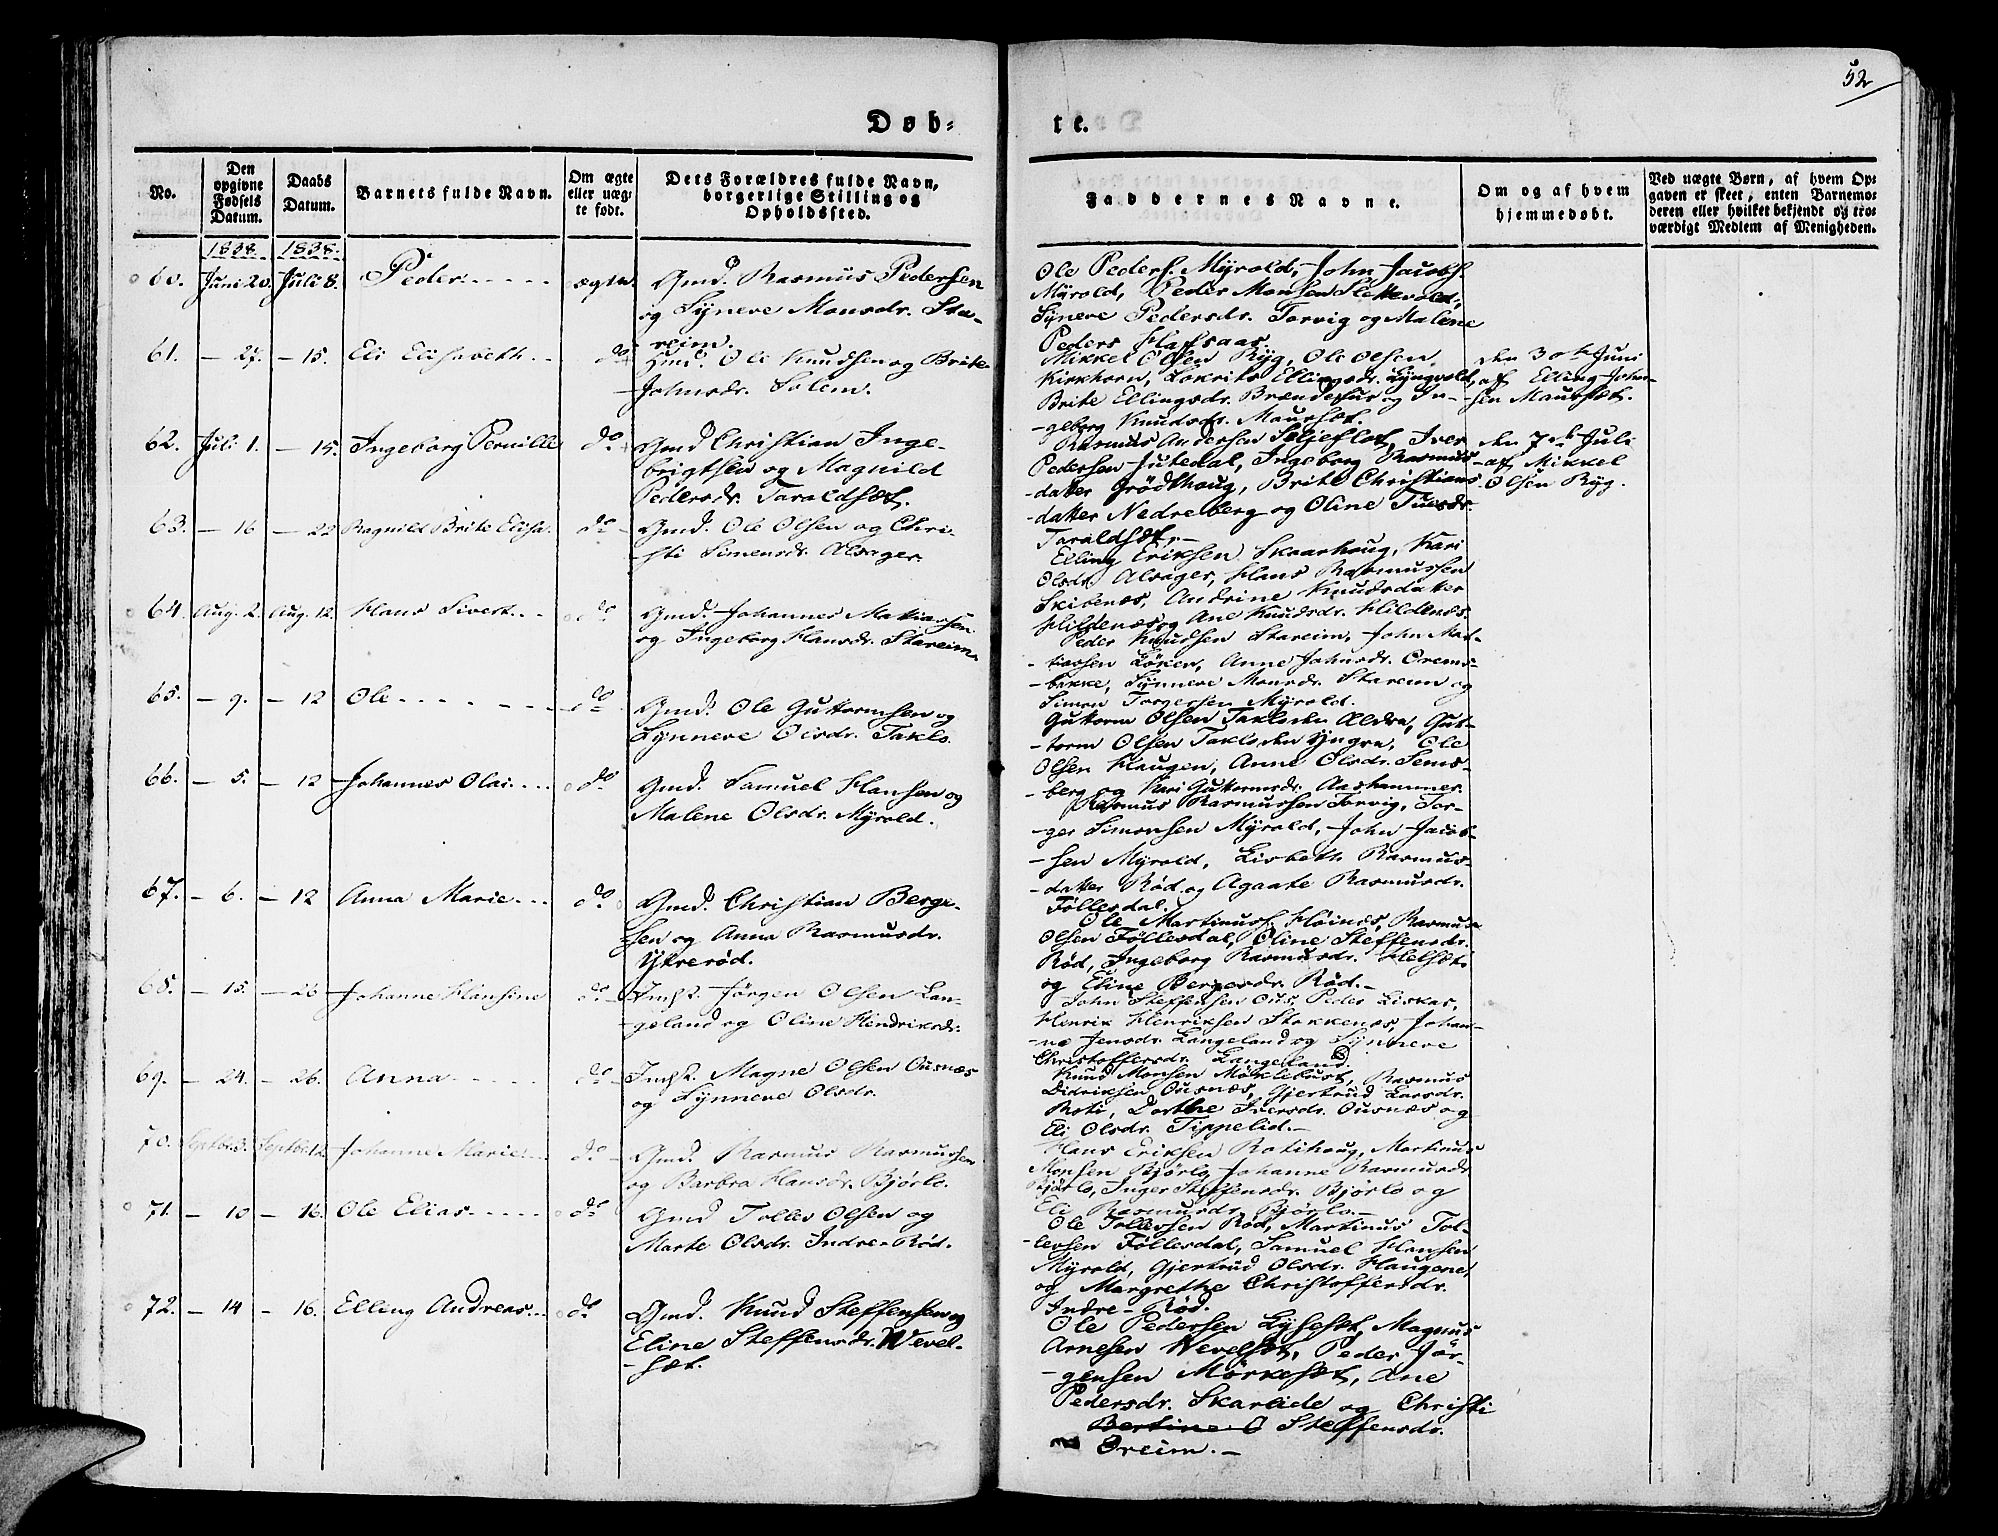 52
Døb-
te.
No.
Den opgivne Fødsels Datum.
Daabs Datum.
Barnets fulde Navn.
Om ægte eller uægte født.
Dets Forældres fulde Navn, borgerlige Stilling og Opholdssted.
Faddernes Navne.
Om og af hvem hjemmedøbt.
Ved uægte Børn, af hvem Op-
gaven er skeet, enten Barnemo-
deren eller hvilket bekjendt og tro-
værdigt Medlem af Menigheden.
1838. 1838.
60. Juni 20. Juli 8. Peder ægte. Gmd. Rasmus Pedersen
og Synneve Monsdr. Sta-
reim.
Ole Peders. Myrold, John Jacobs.
Myrold, Peder Monsen Slettevold,
Synneve Pedersdr. Torvig og Malene
Peders
61. - 27. - 15. Eli Elisabeth do Hmd. Ole Knudsen og Brite
Johnsdr. Solem.
Mikkel Olsen Ryg, Ole Olsen
Kirkhorn, Ellingsdr. Lyngvold,
Brite Ellingsdr. og In-
geborg Knudsdr. Maurset.
den 30te Juni
af Elling John-
sen Maurset.
62. Juli 1. - 15. Ingeborg Pernille do Gmd Christian Inge-
brigtsen og Magnild
Pedersdr. Taraldsæt.
Rasmus Andersen Seljeflot, Iver
Pedersen Jutedal, Ingeborg Rasmus-
datter Grødthoug, Brite Christians-
datter Nedreberg og Oline
Taraldsæt.-
den 7de Juli
af Mikkel
Olsen Ryg.
63. - 16 - 22 Ragnild Brite Elisa. do Gmd. Ole Olsen og Chri-
sti Simensdr. Alsager.
Elling Eriksen Skaarhoug, Kari
Olsdr. Alsager, Hans Rasmussen
Skibenæs, Andrine Knudsdatter
Hildenæs og Ane Knudsdr. Hildenæs.
64. Aug. 2. Aug. 12. Hans Sivert do Gmd. Johannes Matiassen
og Ingeborg Hansdr. Stareim.
Peder Knudsen Stareim, John Mat-
tiassen Løken, Anne Johnsdr. Orems-
bakke, Synneve Monsdr. Stareim og
Simon Torgersen Myrold.
65. - 9. - 12 Ole do Gmd. Ole Guttormsen og
Synneve Olsdr. Taklo.
Guttorm Olsen Taklo den Aldre, Gut-
torm Olsen Taklo den Yngre, Ole
Olsen Haugen, Anne Olsdr. Sems-
berg og Kari Guttormsdr. Aashammer.
66. - 5. - 12 Johannes Olai do Gmd. Samuel Hansen og
Malene Olsdr. Myrold.
Rasmus Rasmussen Torvig, Tor-
ger Simonsen Myrold, John Jacob-
sen Myrold, Lisbeth Rasmus-
datter Rød og Agaate Rasmusdr.
Føllesdal.
67. - 6. - 12 Anna Marie do Gmd. Christian Berge-
sen og Anna Rasmusdr.
Ytrerød.
Ole Martinus. Høinæs, Rasmus
Olsen Føllesdal, Oline Steffensdr.
Rød, Ingeborg Rasmusdr. Helsæt
og Eline Bergesdr. Rød.-
68. - 15. - 26 Johanne Hansine do Jørgen Olsen Lan-
geland og Oline Hendriksdr.
John Steffensen Ous, Peder Liskar,
Henrik Henriksen Stokkenæs, Johan-
ne Jensdr. Langeland og Synneve
Christoffersdr. Langeland.
69. - 24. - 26. Anna do Magne Olsen Ousnæs
og Synneve Olsdr.
Knud Monsen Møklebust, Rasmus
Didriksen Ousnæs, Gjertrud Larsdr.
Roti, Dorthe Iversdr. Ousnæs og
Eli Olsdr. Tippelid.-
70. Septbr. Septbr. Johanne Marie do Gmd. Rasmus Rasmussen
og Barbra Hansdr. Bjørlo.
Hans Eriksen Rotihoug, Martinus
Monsen Bjørlo, Johanne Rasmusdr
Bjørlo, Inger Steffensdr. Bjørlo og
Eli Rasmusdr. Bjørlo.-
71. - 10 - 16. Ole Elias do Gmd Tollev Olsen og
Marte Olsdr. Indre-Rød.
Ole Tollevsen Rød, Martinus Tol-
levsen Føllesdal, Samuel Hansen
Myrold, Gjertrud Olsdr. Haugene,
og Margrethe Christoffersdr.
Indre-Rød.
72. - 14 - 16. Elling Andreas do Gmd. Knud Steffensen og
Eline Steffensdr. Wevel-
sæt.
Ole Pedersen Lyseset, Magnus
Arnesen Wevelset, Peder Jør-
gensen Mørkeset, Ane
Pedersdr. Skarlide og Christi
Bertine O Steffensdr.
Oreim.-